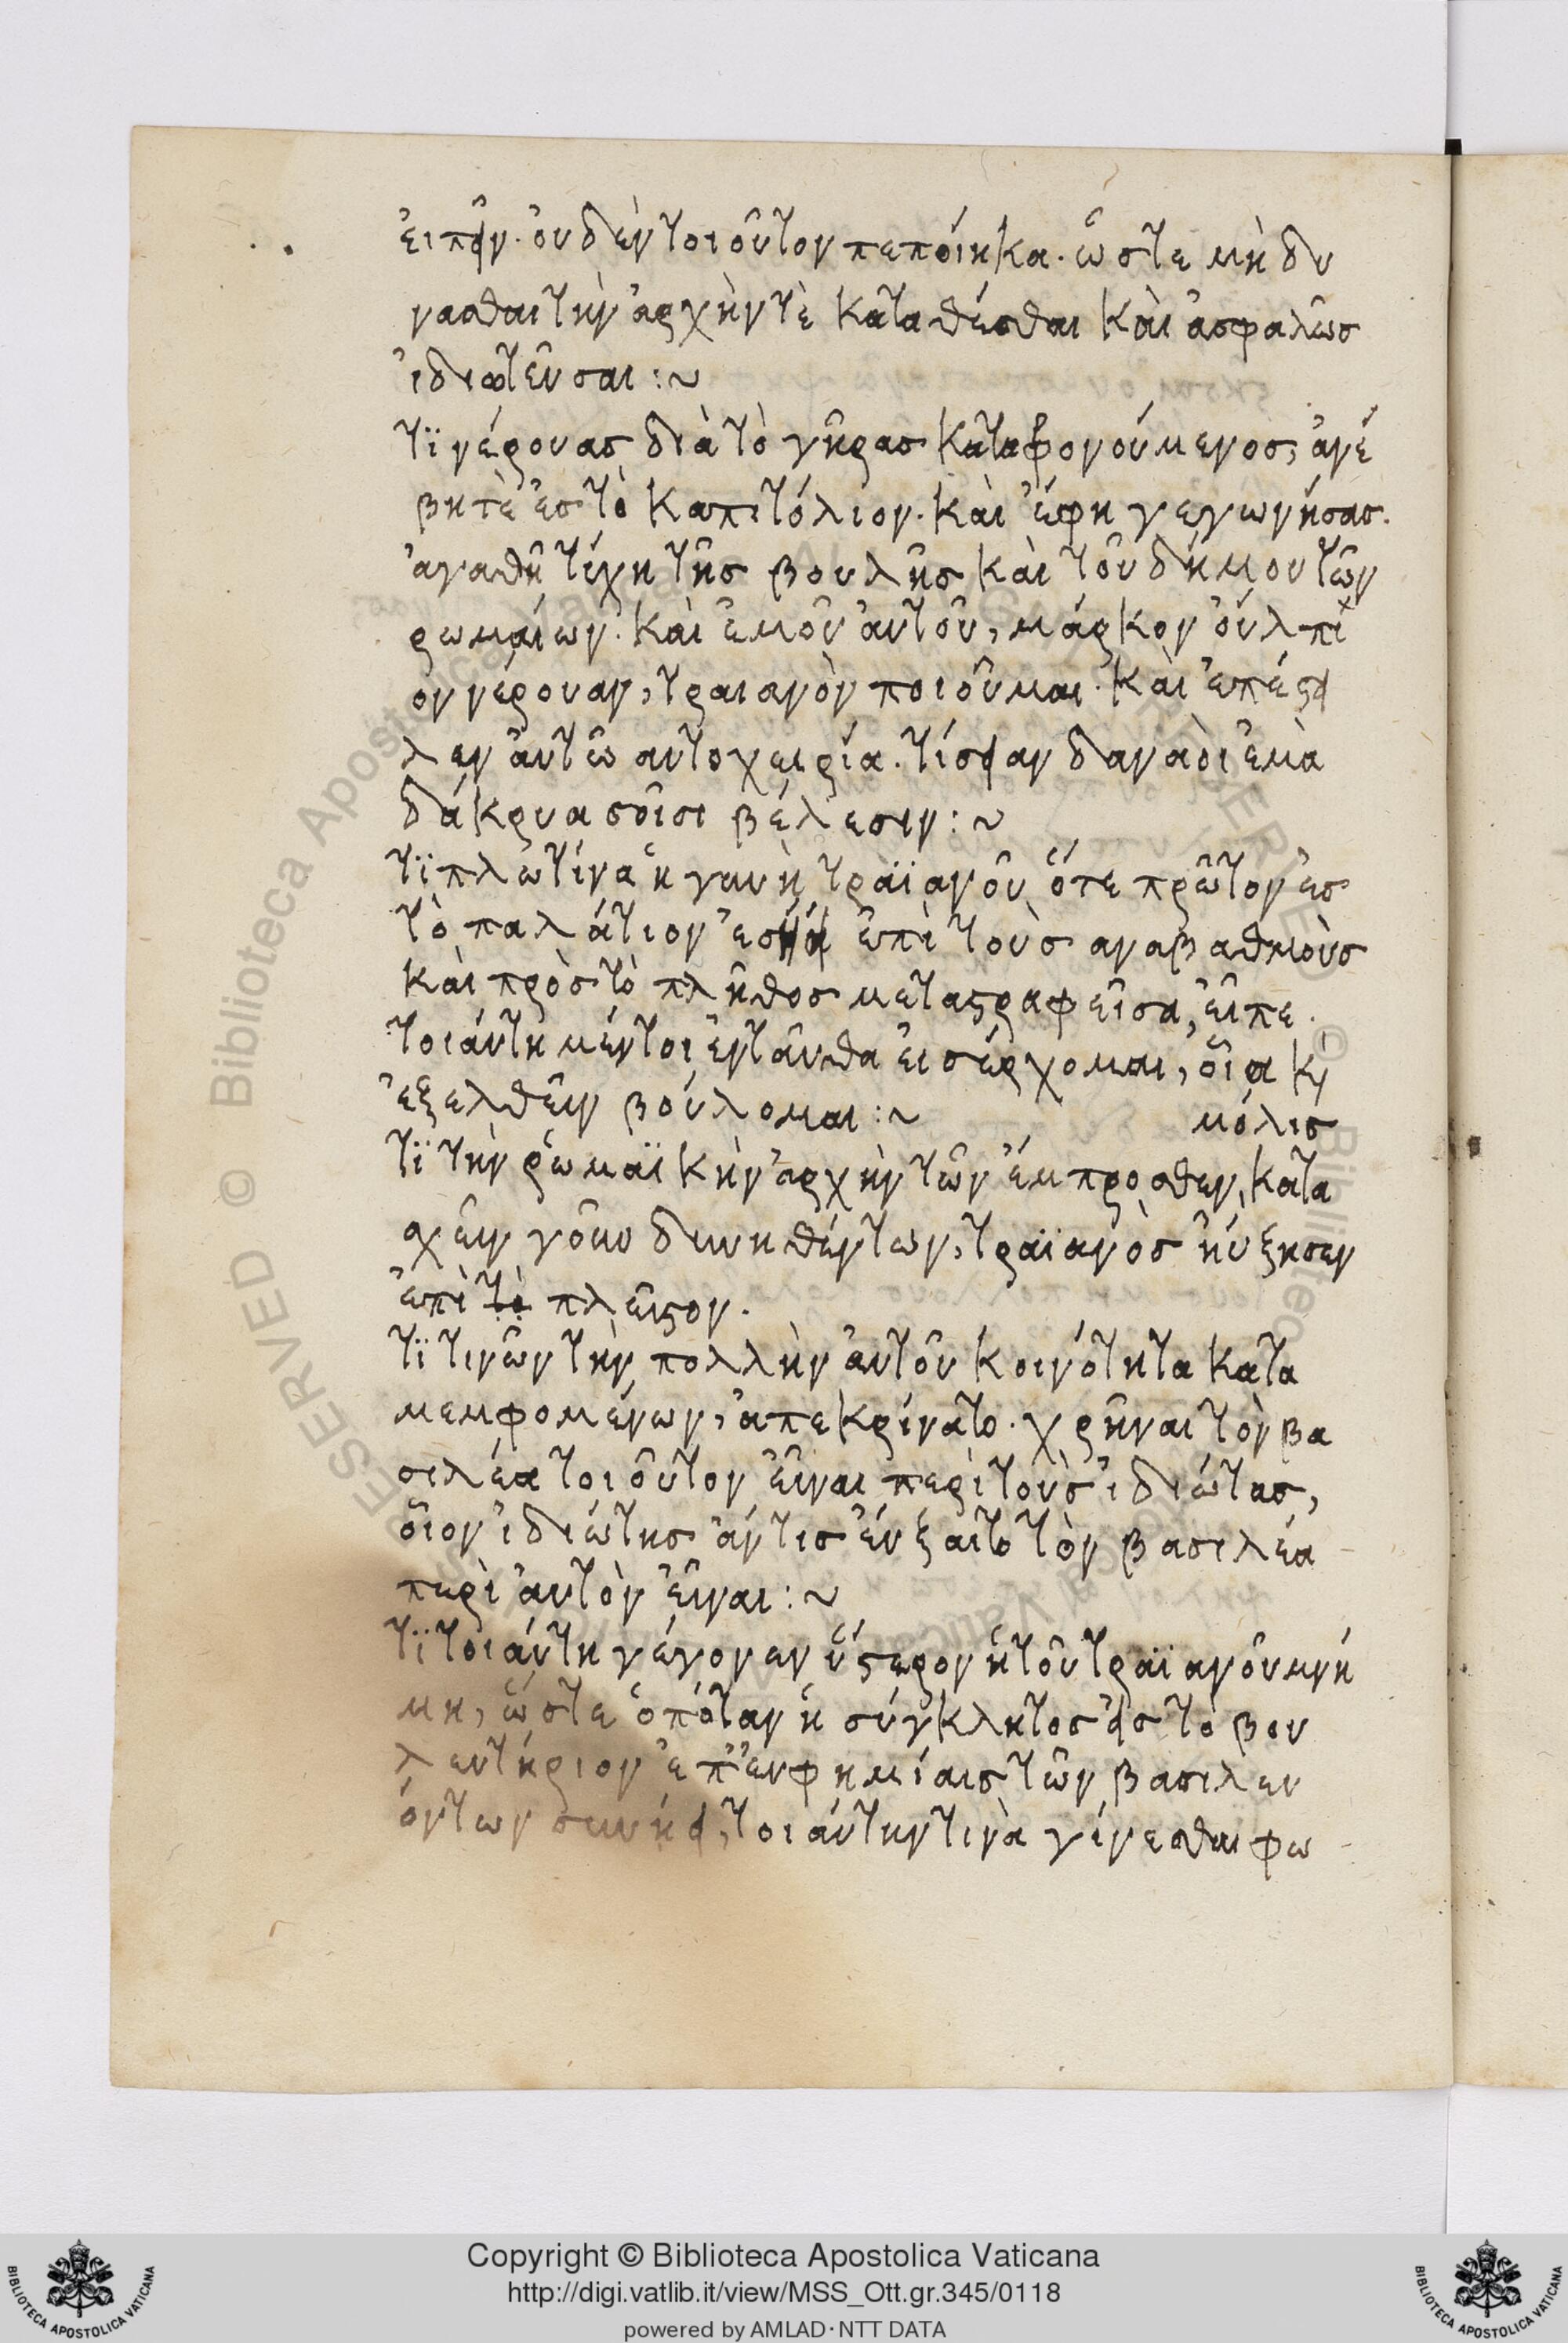 εἰπεῖν. οὐδὲν τοιοῦτον πεποίηκα. ὥστε μὴ δυ
νασθαι τὴν ἀρχήν τὲ καταθέσθαι καὶ ἀσφαλῶσ
ἰδιωτεῦσαι :~
τϊ νέρουασ διὰ τὸ γῆρασ καταφρονούμενοσ, ἀνέ
βη τὲ ἐσ τὸ καπιτόλιον. καὶ ἔφη γεγωνήσασ.
ἀγαθῆ τύχη τῆσ βουλῆσ καὶ τοῦ δήμου τῶν
ρωμαίων. καὶ ἐμοῦ ἀυτοῦ, μάρκον ὀύλπι
ον νέρουαν, τραιανὸν ποιοῦμαι. καὶ ἐπέστει
λεν ἀυτῶ αυτοχειρία. τίσειαν δαναὸι ἐμὰ
δάκρυα σοῖσι βέλεσιν :~
τϊ πλωτίνα ἡ γυνὴ τραϊανοῦ ὅτε πρῶτον ἐσ
τὸ παλάτιον ἐσήει ἐπὶ τοὺσ αναβαθμοὺσ
καὶ πρὸσ τὸ πλῆθοσ μεταστραφεῖσα, εἶπε.
τοιάυτη μέντοι ἐνταῦθα ἐισέρχομαι, ὅια κὶ
ἐξελθεῖν βούλομαι :~
μόλισ
τϊ τὴν ῥωμαϊκὴν ἀρχὴν τῶν ἔμπροσθεν, κατα
σχεῖν γοῦν δυνηθέντων, τραϊανὸσ ηύξησεν
ἐπὶ τὸ πλεῖστον.
τϊ τινῶν τὴν πολλὴν ἀυτοῦ κοινότητα κατα
μεμφομένων, ἀπεκρίνατο. χρῆναι τὸν βα
σιλέα τοιοῦτον εἶναι περὶ τοὺσ ἰδιώτασ,
οἷον ἰδιώτησ ἄν τισ ἔυξαιτο τὸν βασιλέα
περὶ ἀυτὸν εἶναι :~
τϊ τοιάυτη γέγονεν ὕστερον ἡ τοῦ τραϊανοῦ μνή
μη, ὥστε ὁπόταν ἡ σύγκλητοσ εἰσ τὸ βου
λευτήριον ἐπ' ἐυφημίαισ τῶν βασιλευ
όντων συνήει, τοιάυτην τινὰ γίνεσθαι φω
Copyright © Biblioteca Apostolica Vaticana
http://digi.vatlib.it/view/MSS_Ott.gr.345/0118
powered by AMLAD · NTT DATA